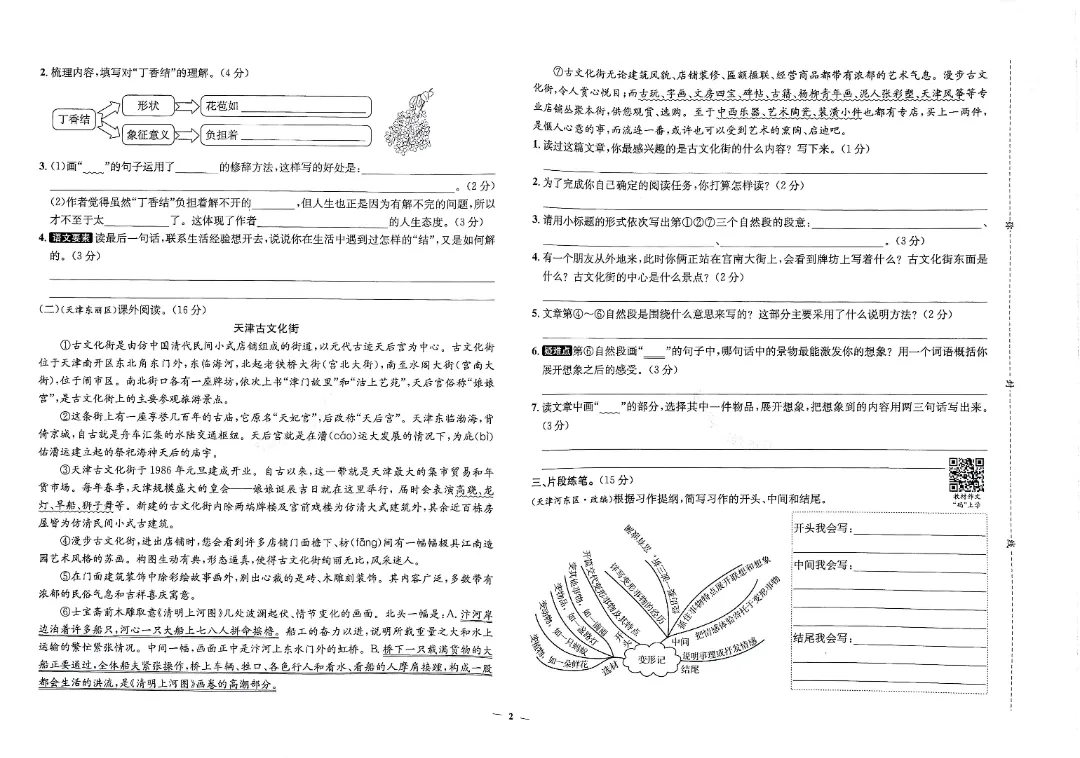 2. 梳理内容,填写对“丁香结”的理解。(4 分)
丁香结
形状
花苞如
象征意义
负担着
3. (1)画“ ”的句子运用了 的修辞方法,这样写的好处是:
。(2 分)
(2)作者觉得虽然“丁香结”负担着解不开的 ,但人生也正是因为有解不完的问题,所以
才不至于太 了。这体现了作者 的人生态度。(3 分)
4. 语文要素 读最后一句话,联系生活经验想开去,说说你在生活中遇到过怎样的“结”,又是如何解
的。(3 分)
(二)(天津东丽区)课外阅读。(16 分)
天津古文化街
①古文化街是由仿中国清代民间小式店铺组成的街道,以元代古迹天后宫为中心。古文化街
位于天津南开区东北角东门外,东临海河,北起老铁桥大街(宫北大街),南至水阁大街(宫南大
街),位于闹市区。南北街口各有一座牌坊,依次上书“津门故里”和“沽上艺苑”,天后宫俗称“娘娘
宫”,是古文化街上的主要参观旅游景点。
②这条街上有一座享誉几百年的古庙,它原名“天妃宫”,后改称“天后宫”。天津东临渤海,背
倚京城,自古就是舟车汇集的水陆交通枢纽。天后宫就是在漕(cáo)运大发展的情况下,为庇(bì)
佑漕运建立起的祭祀海神天后的庙宇。
③天津古文化街于 1986 年元旦建成开业。自古以来,这一带就是天津最大的集市贸易和年
货市场。每年春季,天津规模盛大的皇会——娘娘诞辰吉日就在这里举行,届时会表演高跷、龙
灯、旱船、狮子舞等。新建的古文化街内除两端牌楼及宫前戏楼为仿清大式建筑外,其余近百栋房
屋皆为仿清民间小式古建筑。
④漫步古文化街,进出店铺时,您会看到许多店铺门面檐下、枋(fāng)间有一幅幅极具江南造
园艺术风格的苏画。构图生动有典,形态逼真,使得古文化街绚丽无比,风采迷人。
⑤在门面建筑装饰中除彩绘故事画外,别出心裁的是砖、木雕刻装饰。其内容广泛,多数带有
浓郁的民俗气息和吉祥喜庆寓意。
⑥士宝斋前木雕取意《清明上河图》几处波澜起伏、情节变化的画面。北头一幅是:A. 汴河岸
边泊着许多船只,河心一只大船上七八人拼命接橹。船工的奋力以进,说明所载重量之大和水上
运输的繁忙紧张情况。中间一幅,画面正中是汴河上东水门外的虹桥。B. 桥下一只载满货物的大
船正要通过,全体船夫紧张操作,桥上车辆、牲口、各色行人和看水、看船的人摩肩接踵,构成一股
都会生活的洪流,是《清明上河图》画卷的高潮部分。
⑦古文化街无论建筑风貌、店铺装修、匾额楹联、经营商品都带有浓郁的艺术气息。漫步古文
化街,令人赏心悦目;而古玩、字画、文房四宝、碑帖、古籍、杨柳青年画、泥人张彩塑、天津风筝等专
业店铺丛聚本街,供您观赏、选购。至于中西乐器、艺术陶瓷、装潢小件也都有专店,买上一两件,
是惬人心意的事,而流连一番,或许也可以受到艺术的熏陶、启迪吧。
1. 读过这篇文章,你最感兴趣的是古文化街的什么内容?写下来。(1 分)
2. 为了完成你自己确定的阅读任务,你打算怎样读?(2 分)
3. 请用小标题的形式依次写出第①②⑦三个自然段的段意: 、
、 。(3 分)
4. 有一个朋友从外地来,此时你俩正站在宫南大街上,会看到牌坊上写着什么?古文化街东面是
什么?古文化街的中心是什么景点?(2 分)
5. 文章第④~⑥自然段是围绕什么意思来写的?这部分主要采用了什么说明方法?(2 分)
6. 疑难点 第⑥自然段画“ ”的句子中,哪句话中的景物最能激发你的想象?用一个词语概括你
展开想象之后的感受。(3 分)
7. 读文章中画“ ”的部分,选择其中一件物品,展开想象,把想象到的内容用两三句话写出来。
(3 分)
三、片段练笔。(15 分)
教材作文
“码”上学
(天津河东区·改编)根据习作提纲,简写习作的开头、中间和结尾。
变形记
选材
变植物,如一朵鲜花
变动物,如一只蚂蚁
变物品,如一盏路灯
开头
开篇交代变形事物及其特点
中间
详写变形事物的经历
抓住事物特点展开联想和想象
把情感体验寄托于变形事物
结尾
说明事理或抒发情感
开头我会写:
中间我会写:
结尾我会写:
密
封
线
2